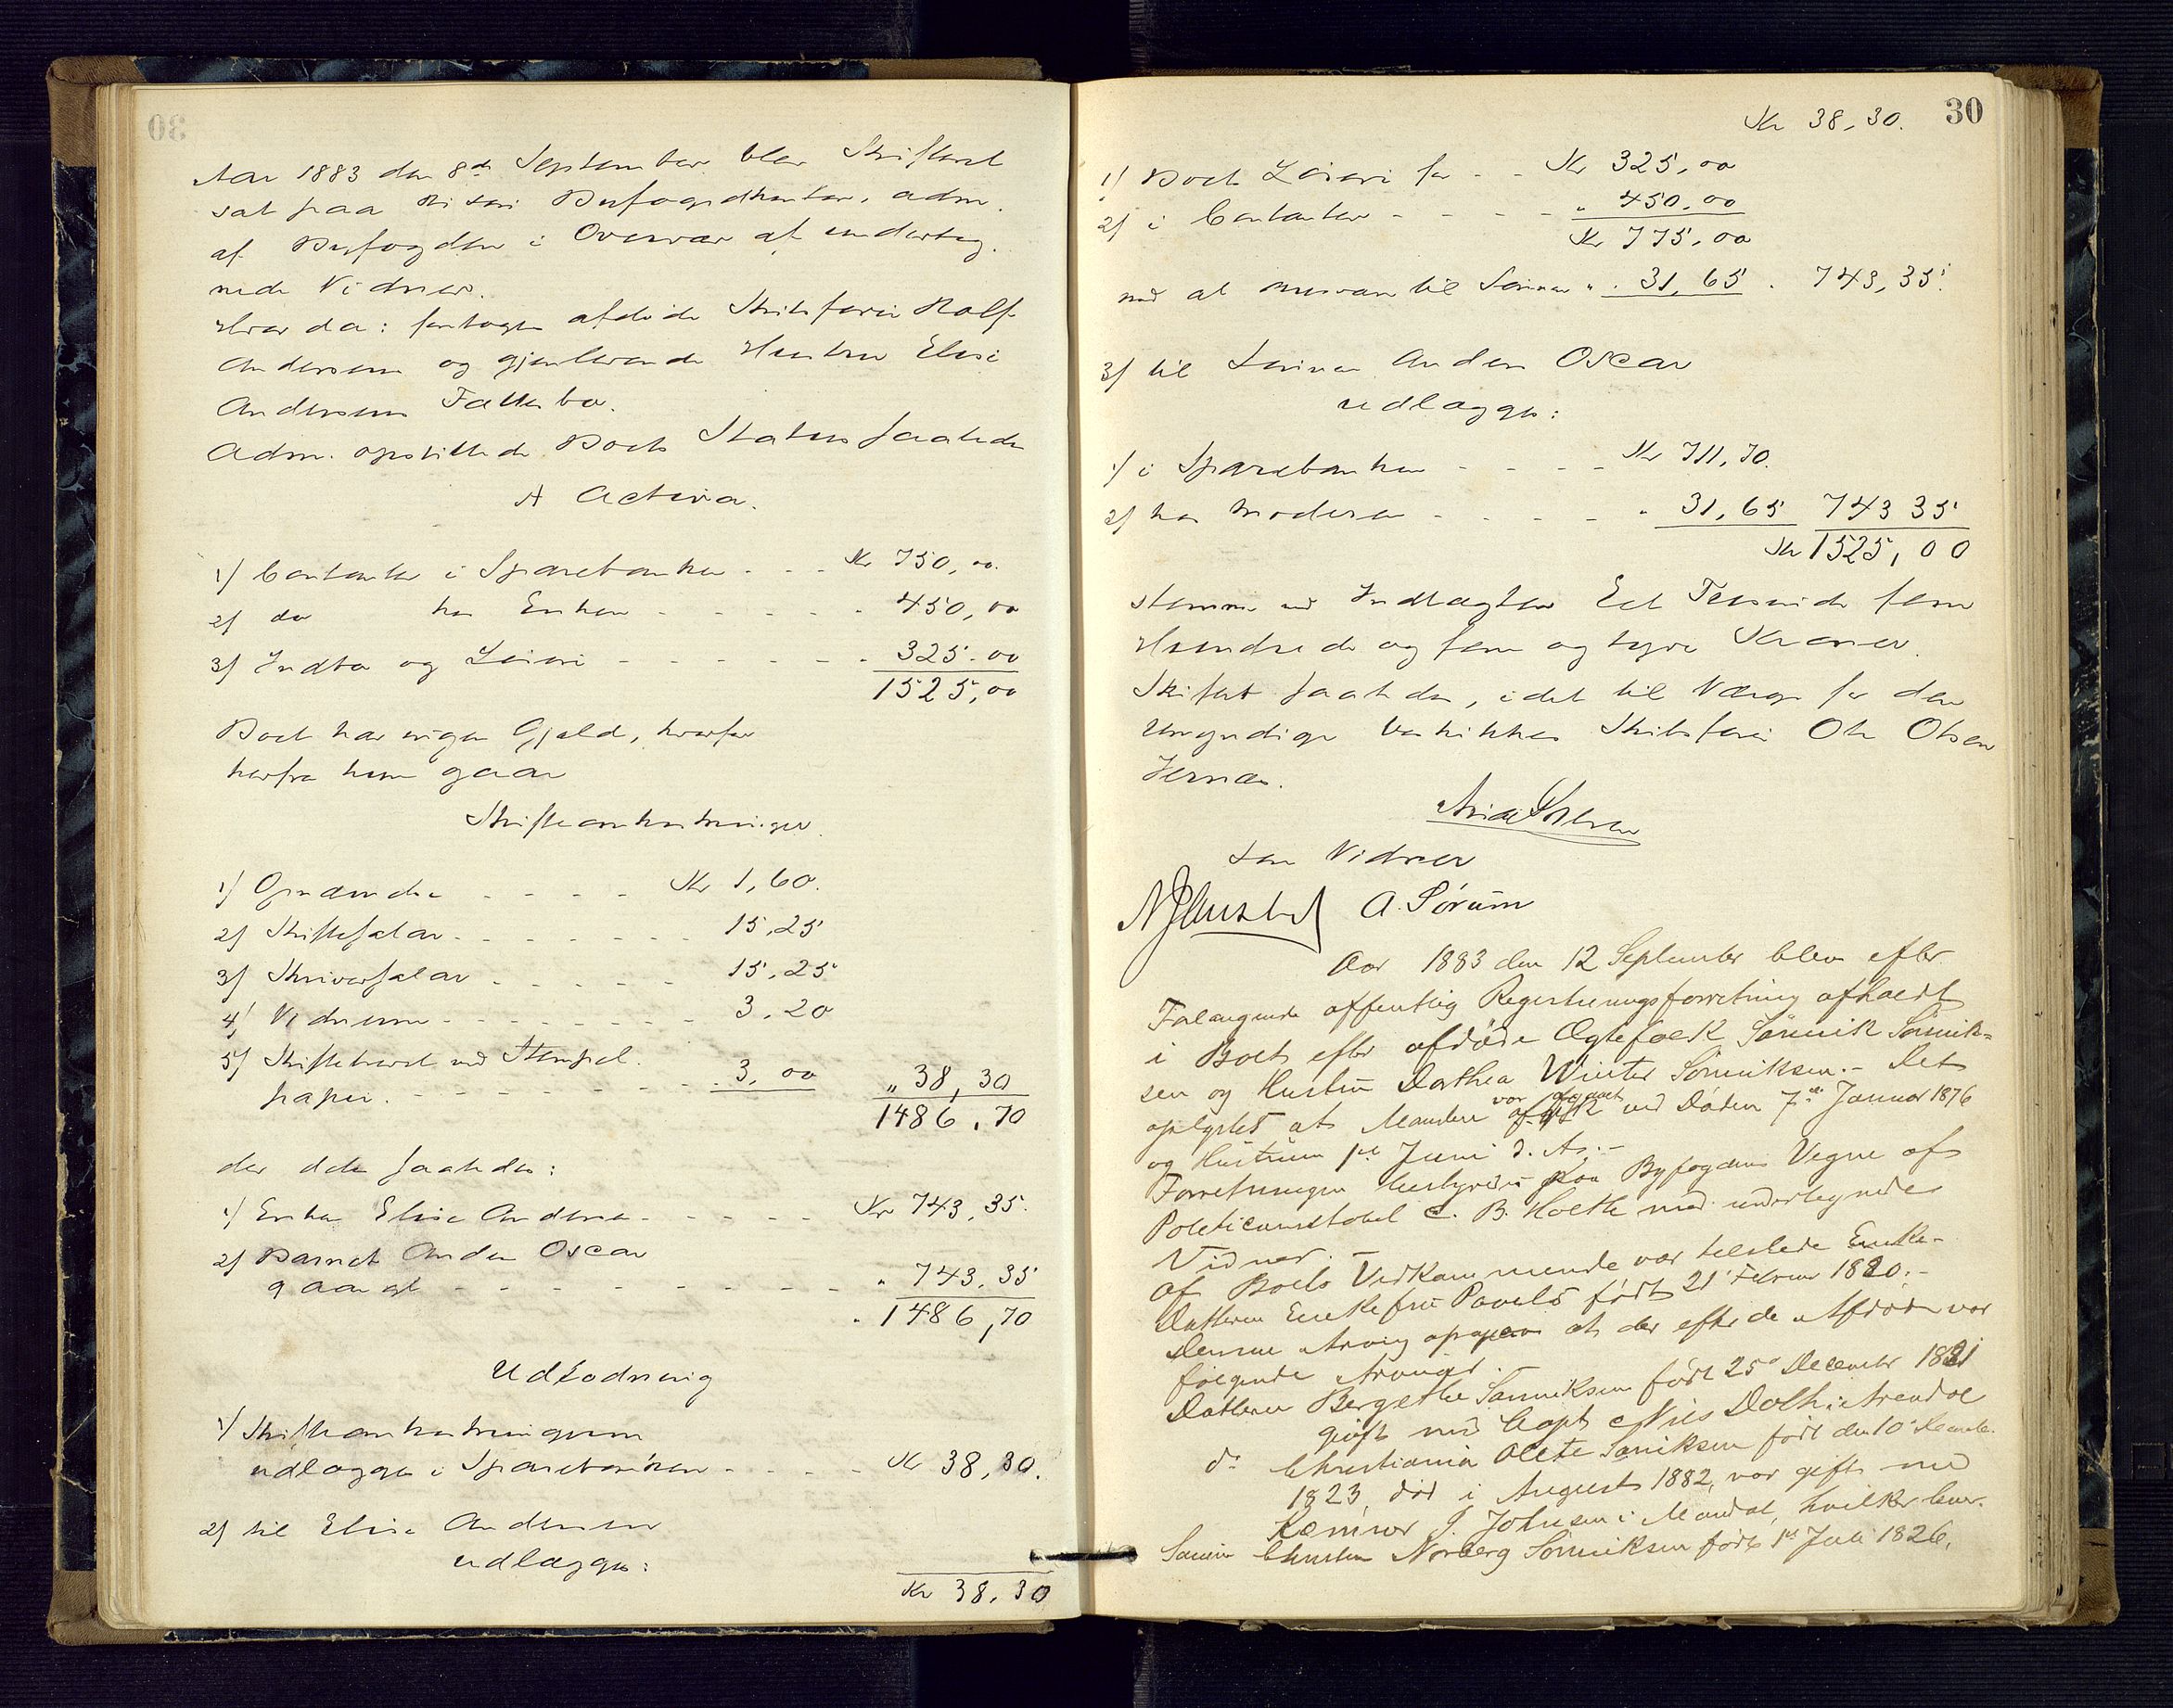 Aar 1883 den 8de September blev Skifteret
sat paa Risør Byfogedkontor, adm.
af Byfogden i Overvær af underteg-
nede Vidner.
Hvor da: foretoges afdøde Skibsfører Rolf
Andersens og gjenlevende Hustru Elise
Andersens Fællesbo.
Adm. opstillede Boets Status saaledes
A Activa.
1) Contanter i Sparebanken - - - Kr 750,00.
2) do hos Enken - - - - - 450,00
3) Indbo og Løsøre - - - - - - 325.00
1525,00
Boet har ingen Gjæld, hvorfor
herfra kun gaar
Skifteomkostninger
1) Opnævnelse - - - - Kr 1,60.
2) Skiftesalær - - - - - - - 15,25
3) Skriversalær - - - - - 15,25
4) Vidnerne - - - - - - - 3.20
5) Skiftebrevet med Stempel-
papir. - - - - - - - - - 3,00 „ 38,30
1486.70
der deles saaledes:
1) Enken Elise Andersen - - - - - Kr 743,35.
2) Barnet Anders Oscar
ogsaa - - - - - - - - - „ 743.35
„ 1486,70
Udlodning
1) Skifteomkostningerne
udlægges i Sparebanken - - - - Kr 38,30.
2) til Elise Andersen
udlægges:
Kr 38,30
30
Kr 38,30.
1) Boets Løsøre for - - Kr 325,00
2) i Contanter - - - - - „ 450,00
Kr 775,00
mod at svare til Sønnen „ . 31,65 . 743,35.
3) til Sønnen Anders Oscar
udlægges:
1) i Sparebanken - - - - Kr 711,70.
2) hos Moderen - - - - - „ 31,65 743 35
Kr 1525,00
stemmer med Indtægten Et Tusinde fem
Hundrede og fem og tyve Kroner.
Skiftet saaledes, idet til Værge for den
Umyndige beskikkes Skibsfører Ole Olsen
Jernæs.
Som Vidner
A. Sørum
Aar 1883 den 12 September blev efter
Forlangende offentlig Registreringsforretning afholdt
i Boet efter afdøde Ægtefolk Sønnik Sønnik-
sen og Hustru Dorthea Winter Sønniksen. - Det
oplystes at Manden var afgaaet ved Døden 7de Januar 1876
og Hustruen 1ste Juni d. A. -
Forretningen bestyredes paa Byfogdens Vegne af
Politiconstabel C. B. Holth med undertegnede
Vidner. -
Af Boets Vedkommende var tilstede Enke-
Datteren Enkefru Povels født 21 Februar 1820. -
Denne Arving opgav at der efter de Afdøde var
følgende Arvinger.
Datteren Bergethe Sønniksen født 25 December 1821
gift med Capt Nils Dolh i Arendal
do Christiania Olete Sønniksen født den 10 Decembr.
1823, død i August 1882, var gift med
Kæmner J. Johnsen i Mandal, hvilken lever.
Sønnen Christen Norberg Sønniksen født 1ste Juli 1826.